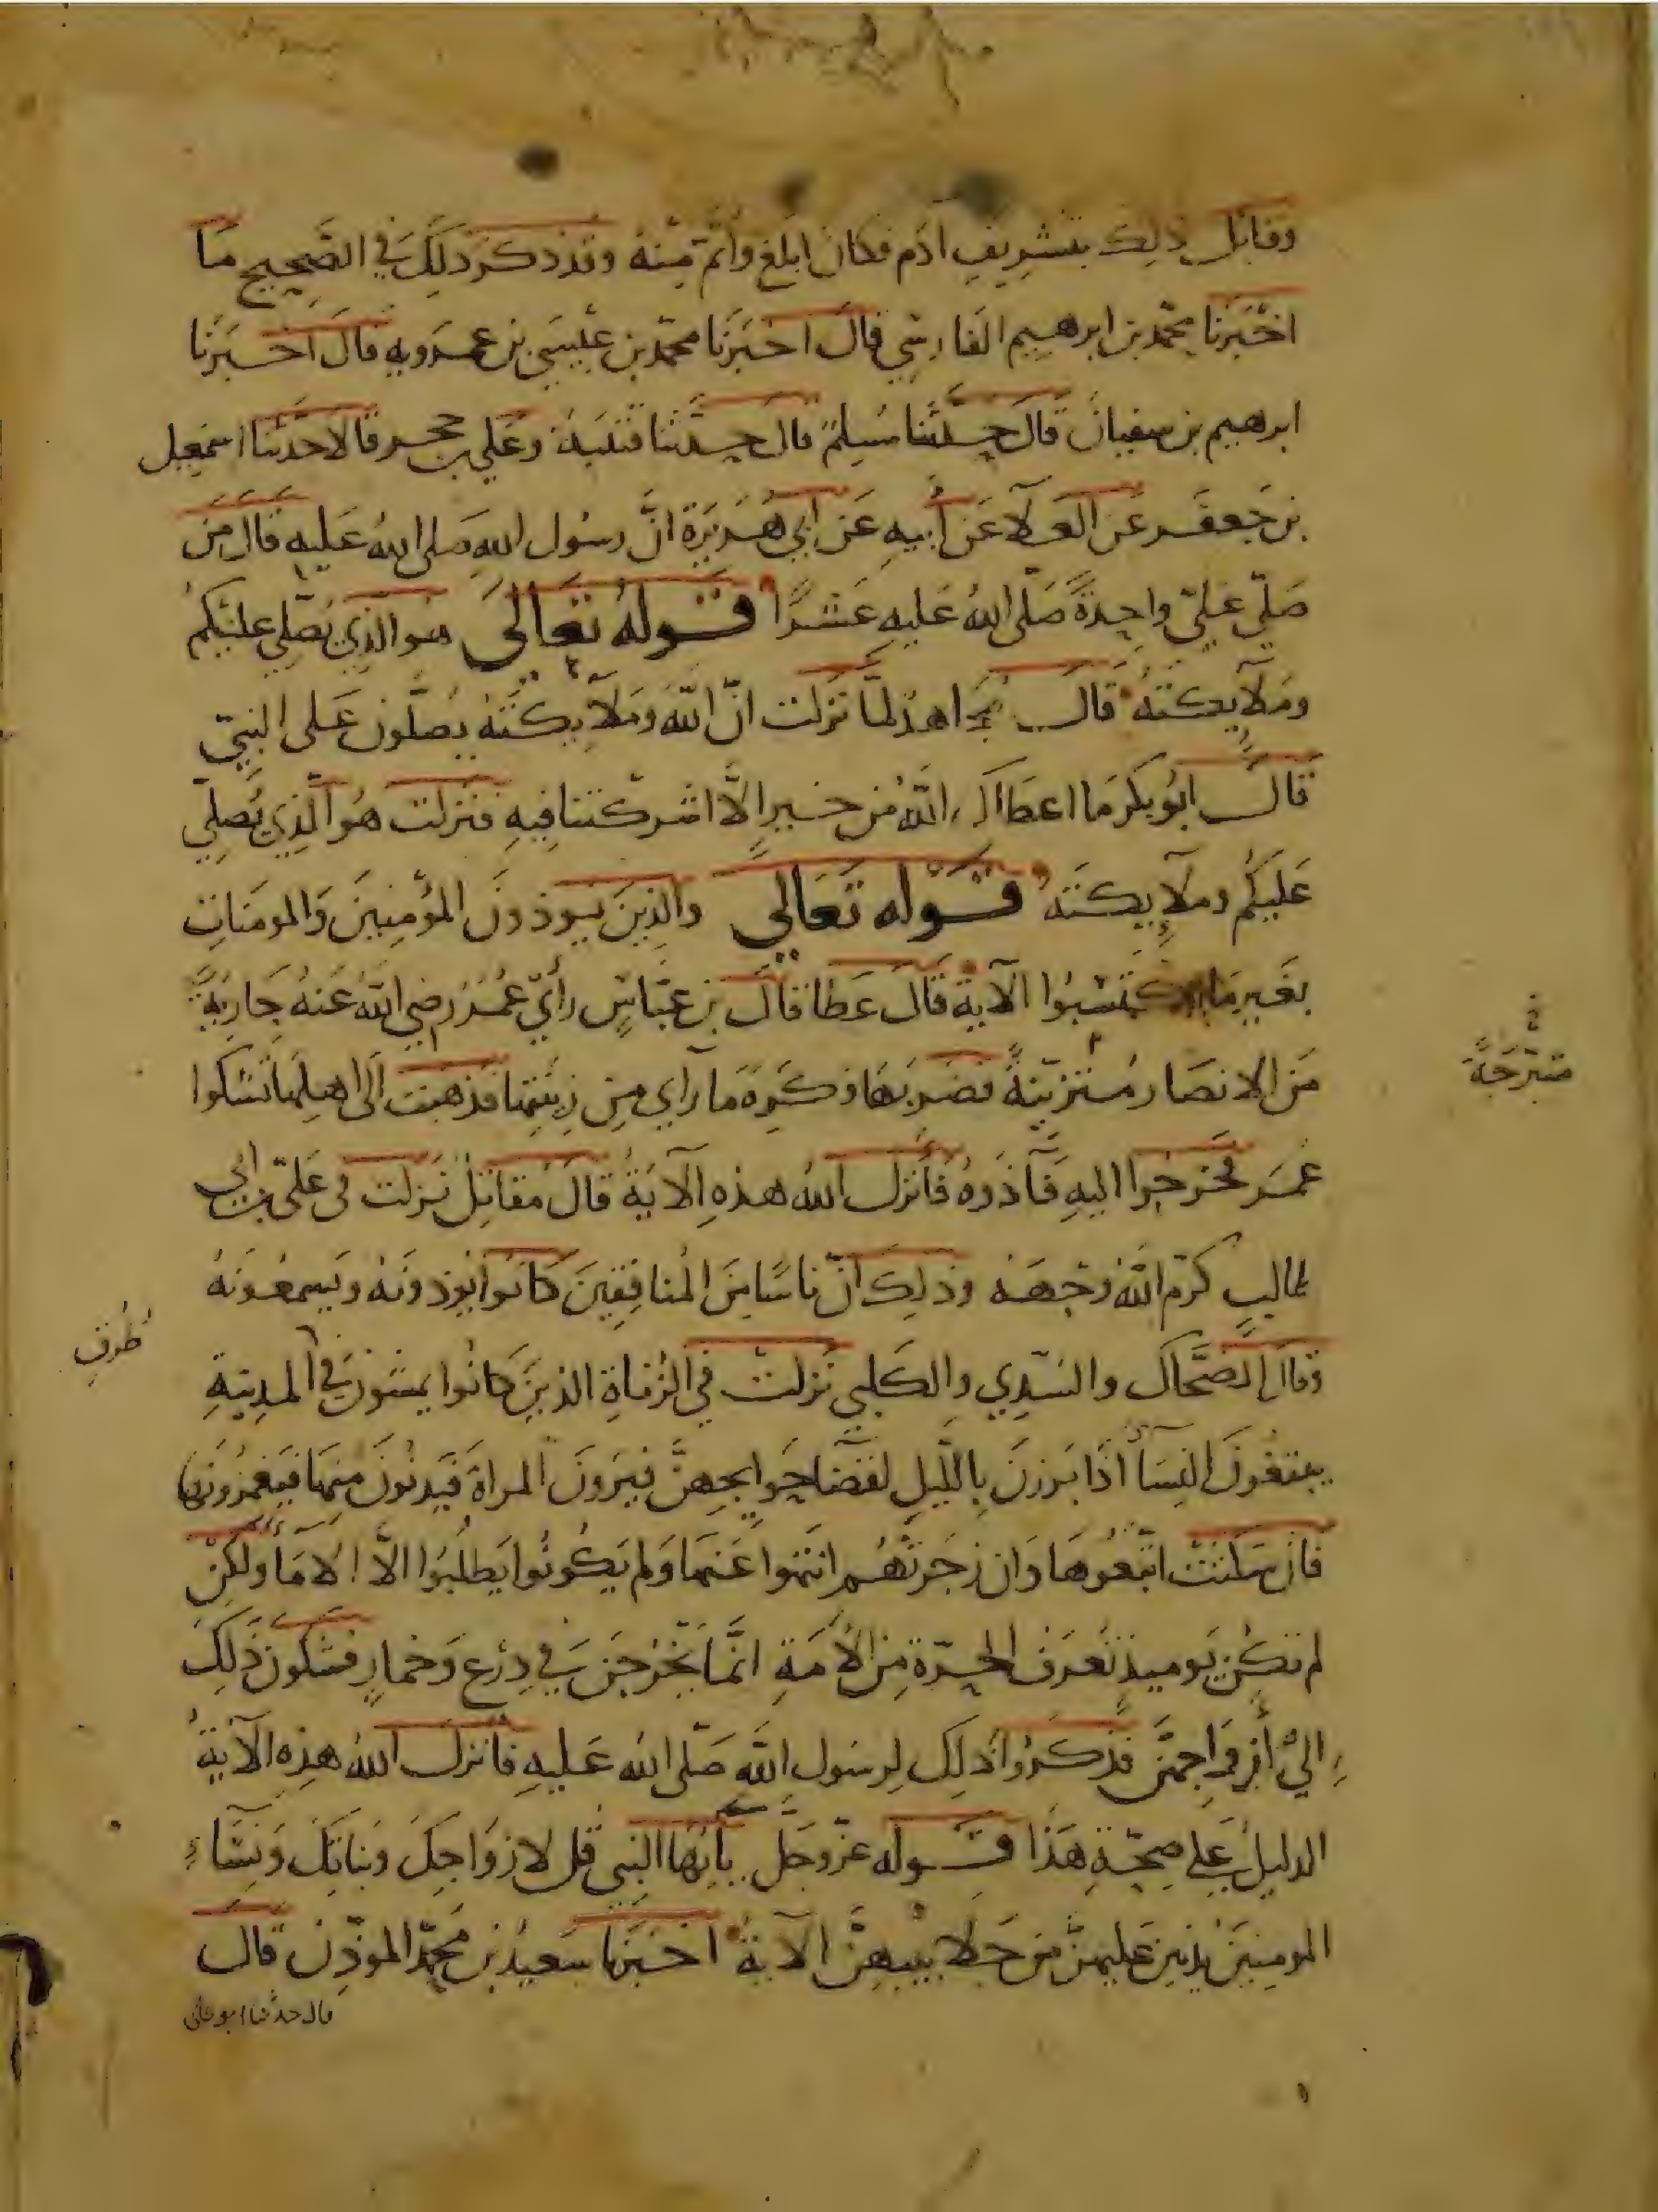 وقابل ذلك بتشريف آدم فكان ابلغ وأتم منه وقد ذكر ذلك في الصحيح ما
اخبرنا محمد بن ابرهيم الفارسي قال اخبرنا محمد بن عيسى بن عمرويه قال اخبرنا
ابرهيم بن سفيان قال حدثنا مسلم قال حدثنا قتيبة وعلي بن حجر قالا حدثنا اسمعيل
بن جعفر عن العلآ عن أبيه عن ابي هريرة انّ رسول الله صلى الله عليه قال من
صلّى عليّ واحدةً صلّى الله عليه عشرًا قوله تعالى هو الذي يصلي عليكم
وملآيكته قال مجاهد لمّا نزلت انّ الله وملآيكته يصلّون على النبيّ
قال ابو بكر ما اعطاك الله من خير الّا اشركتنا فيه فنزلت هو الذي يصلّي
عليكم وملآيكته قوله تعالى والذين يوذون المؤمنين والمومنات
بغير ما اكتسبوا الآية قال عطا قال بن عبّاس رأي عمر رضي الله عنه جاريةً
من الانصار متزينةً فضربها وكره ما رآي من زينتها فذهبت الى اهلها تشكوا
متبرّجةً خ
عمر فخرجوا اليه فآذوه فأنزل الله هذه الآية قال مقاتل نزلت في عليّ بن ابي
طالب كرّم الله وجهه وذلك انّ ناسًا من المنافقين كانوا يوذونه ويسمعونه
وقال الضحّاك والسّدي والكلبي نزلت في الزناة الذين كانوا يمشون في المدينة
طرف
يبتغون النسآ اذا برزن بالليل لقضآ حوايجهنّ فيرون المراة فيدنون منها فيغمزونها
فان سكتت اتّبعوها وان زجرتهم انتهوا عنها ولم يكونوا يطلبوا الّا الامآ ولكن
لم تكن يوميذٍ تعرف الحرّة من الأمة انّما يخرجن في درعٍ وخمارٍ فشكون ذلك
الي أزواجهنّ فذكروا ذلك لرسول الله صلّى الله عليه فأنزل الله هذه الآية
الدليل على صحّة هذا قوله عزّ وجلّ يأيّها النبي قل لازواجك وبناتك ونسآء
المومنين يدنين عليهنّ من جلابيبهنّ الآية اخبرنا سعيد بن محمّد الموذّن قال
قال حدثنا ابو علي